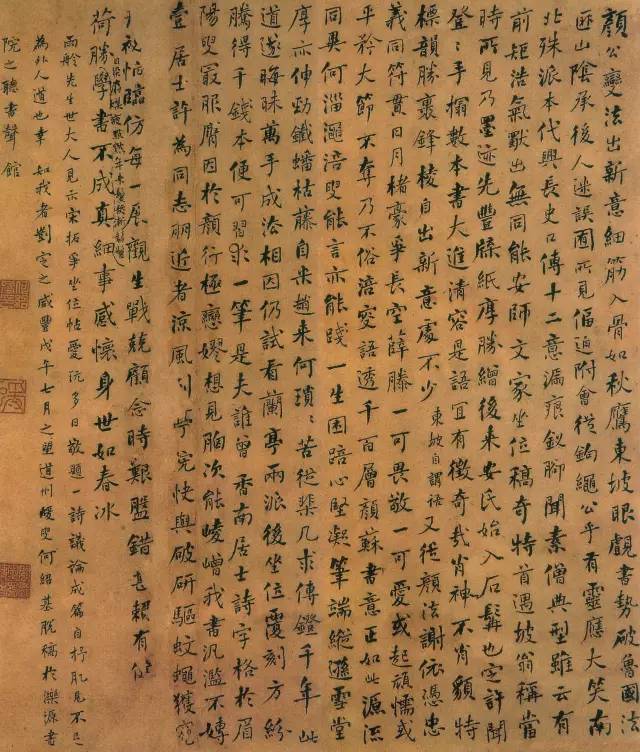 顏公變法出新意細筋入骨如秋鷹東坡眼覷書勢破魯國法
匝山陰承後人迷誤面所見偪迫附會從鈎繩公乎有靈應大笑南
北殊派本代興長史口傳十二意漏痕釵腳聞素僧典型雖云有
前矩浩氣獸出無同能安師文家坐位稿奇特首遇坡翁稱當
時所見乃墨迹先豐牋紙摩勝繒後来安氏始入石也定許聞
登登手搨數本書大進清容是語宜有徵奇哉肖神不肖貌特
標韻勝裹鋒棱自出新意處不少東坡自謂語又從顏法謝依憑忠
義同符貫日月楮豪爭長空薛滕一可畏敬一可愛或起頑懦或
平矜大節不奪乃不俗涪叟語透千百層顏蘇書意正如此源流
同異何淄澠涪叟能言亦能踐一生困踣心堅凝筆端縱遜雪堂
厚亦伸勁鐵蟠枯藤自米趙来何瑣瑣苦從棐几求傳鐙千年此
道遂晦昧萬手成法相因仍試看蘭亭兩派後坐位覆刻方紛
騰得千錢本便可習求一筆是夫誰曾香南居士詩字格於眉
陽叟最服膺因於顏行極戀嫪想見胸次能崚嶒我書汎濫不專
壹居士許為同志朋近者涼風到學究快與破研驅蚊蠅獲窺
臨仿每一展觀生戰兢顧念時艱錯甚賴有
荷勝學書不成真細事感懷身世如春冰
雨舲先生世大人見示宋拓爭坐位帖愛玩多日敬題一詩議論成篇自抒肊見不足
為外人道也幸 如我者劉寬之咸豐戊午七月之望道州叟何紹基脫稿於濼源書
院之聽書聲館